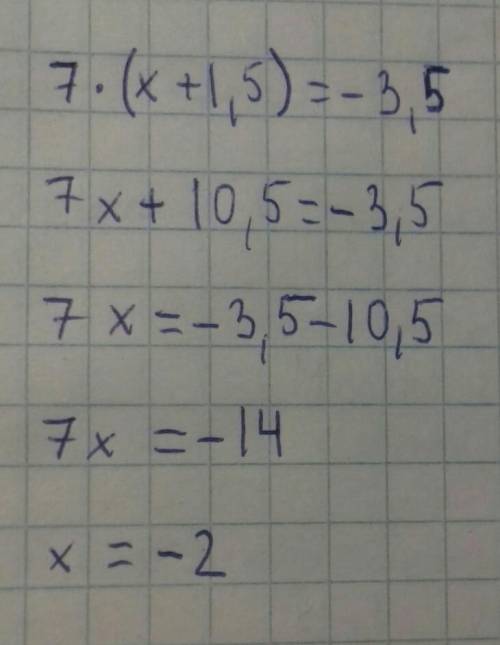 7·(x+1,5)=-3,5
7x+10,5=-3,5
7x=-3,5-10,5
7x=-14
x=-2